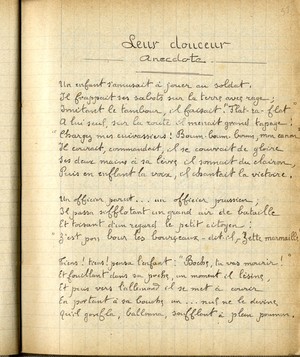 Leur douceur
Anecdote.
Un enfant s'amusait à jouer au soldat.
Il frappait ses sabots sur la terre avec rage ;
Imitant le tambour, il faisait "Flat-ra-flat
A lui seul, sur la route il menait grand tapage !
"Chargez mes cuirassiers ! Boum-boum-boum, mon canon
Il courait, commandait, il se couvrait de gloire
Ses deux mains à sa lèvre, il sonnait du clairon,
Puis en enflant la voix, il chantait la victoire.
Un officier parut... un officier prussien ;
Il passa sifflotant un grand air de bataille
Et toisant d'un regard le petit citoyen :
"C'est pon, bour les bourgeaux - dit-il, Zette marmaille
Tiens ! tiens ! pensa l'enfant : "Boche, tu vas mourir !
Et fouillant dans sa poche, un moment il lésine,
Et puis vers l'allemand il se met à courir
En portant à sa bouche un... nul ne le devine,
Qu'il gonfla, ballonna, soufflant à plein poumon.